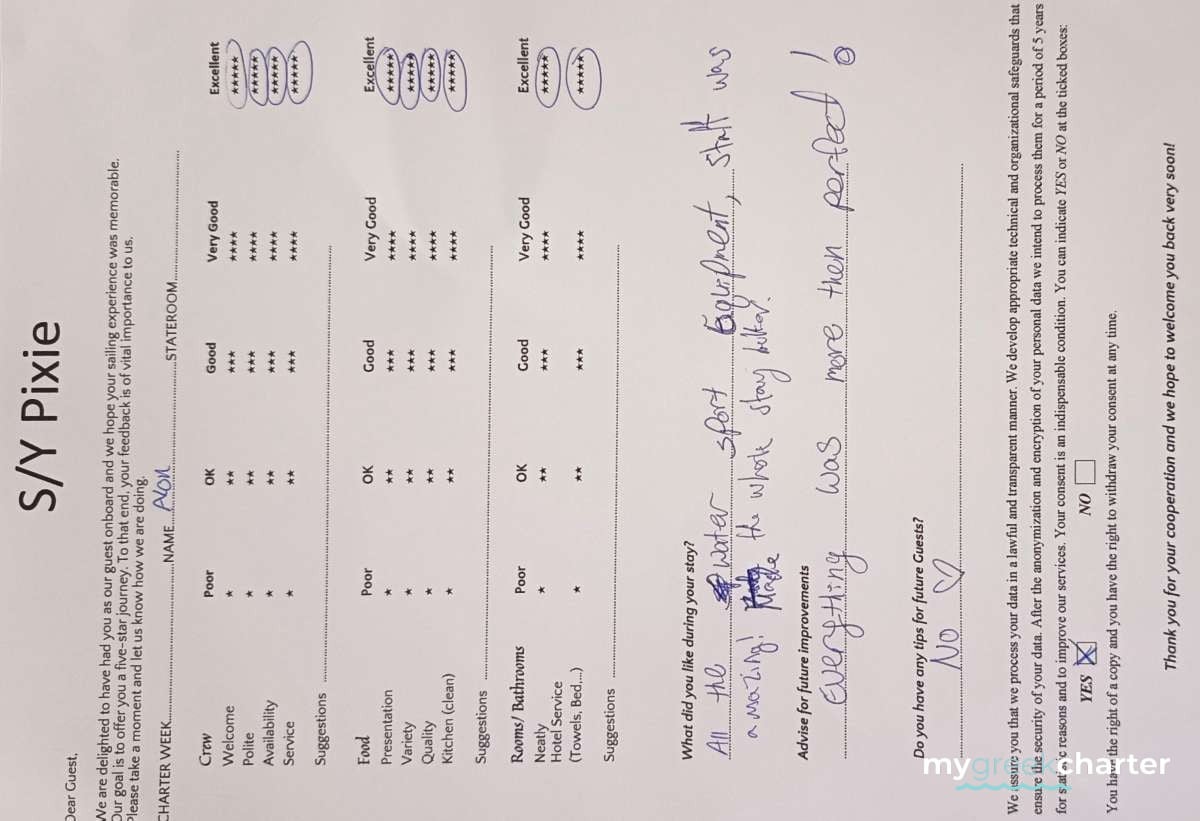 S/Y Pixie
Dear Guest,
We are delighted to have had you as our guest onboard and we hope your sailing experience was memorable.
Our goal is to offer you a five-star journey. To that end, your feedback is of vital importance to us.
Please take a moment and let us know how we are doing.
CHARTER WEEK NAME Alon STATEROOM
Crew Poor OK Good Very Good Excellent
Welcome ★ ★★ ★★★ ★★★★ ★★★★★
Polite ★ ★★ ★★★ ★★★★ ★★★★★
Availability ★ ★★ ★★★ ★★★★ ★★★★★
Service ★ ★★ ★★★ ★★★★ ★★★★★
Suggestions
Food Poor OK Good Very Good Excellent
Presentation ★ ★★ ★★★ ★★★★ ★★★★★
Variety ★ ★★ ★★★ ★★★★ ★★★★★
Quality ★ ★★ ★★★ ★★★★ ★★★★★
Kitchen (clean) ★ ★★ ★★★ ★★★★ ★★★★★
Suggestions
Rooms/ Bathrooms Poor OK Good Very Good Excellent
Neatly ★ ★★ ★★★ ★★★★ ★★★★★
Hotel Service
(Towels, Bed...) ★ ★★ ★★★ ★★★★ ★★★★★
Suggestions
What did you like during your stay?
All the water sport Equipment, staff was
amazing! Made the whole stay better.
Advise for future improvements
Everything was more then perfect!
Do you have any tips for future Guests?
No ♡
We assure you that we process your data in a lawful and transparent manner. We develop appropriate technical and organizational safeguards that
ensure the security of your data. After the anonymization and encryption of your personal data we intend to process them for a period of 5 years
for statistic reasons and to improve our services. Your consent is an indispensable condition. You can indicate YES or NO at the ticked boxes:
YES ☒ NO ☐
You have the right of a copy and you have the right to withdraw your consent at any time.
Thank you for your cooperation and we hope to welcome you back very soon!
mygreekcharter